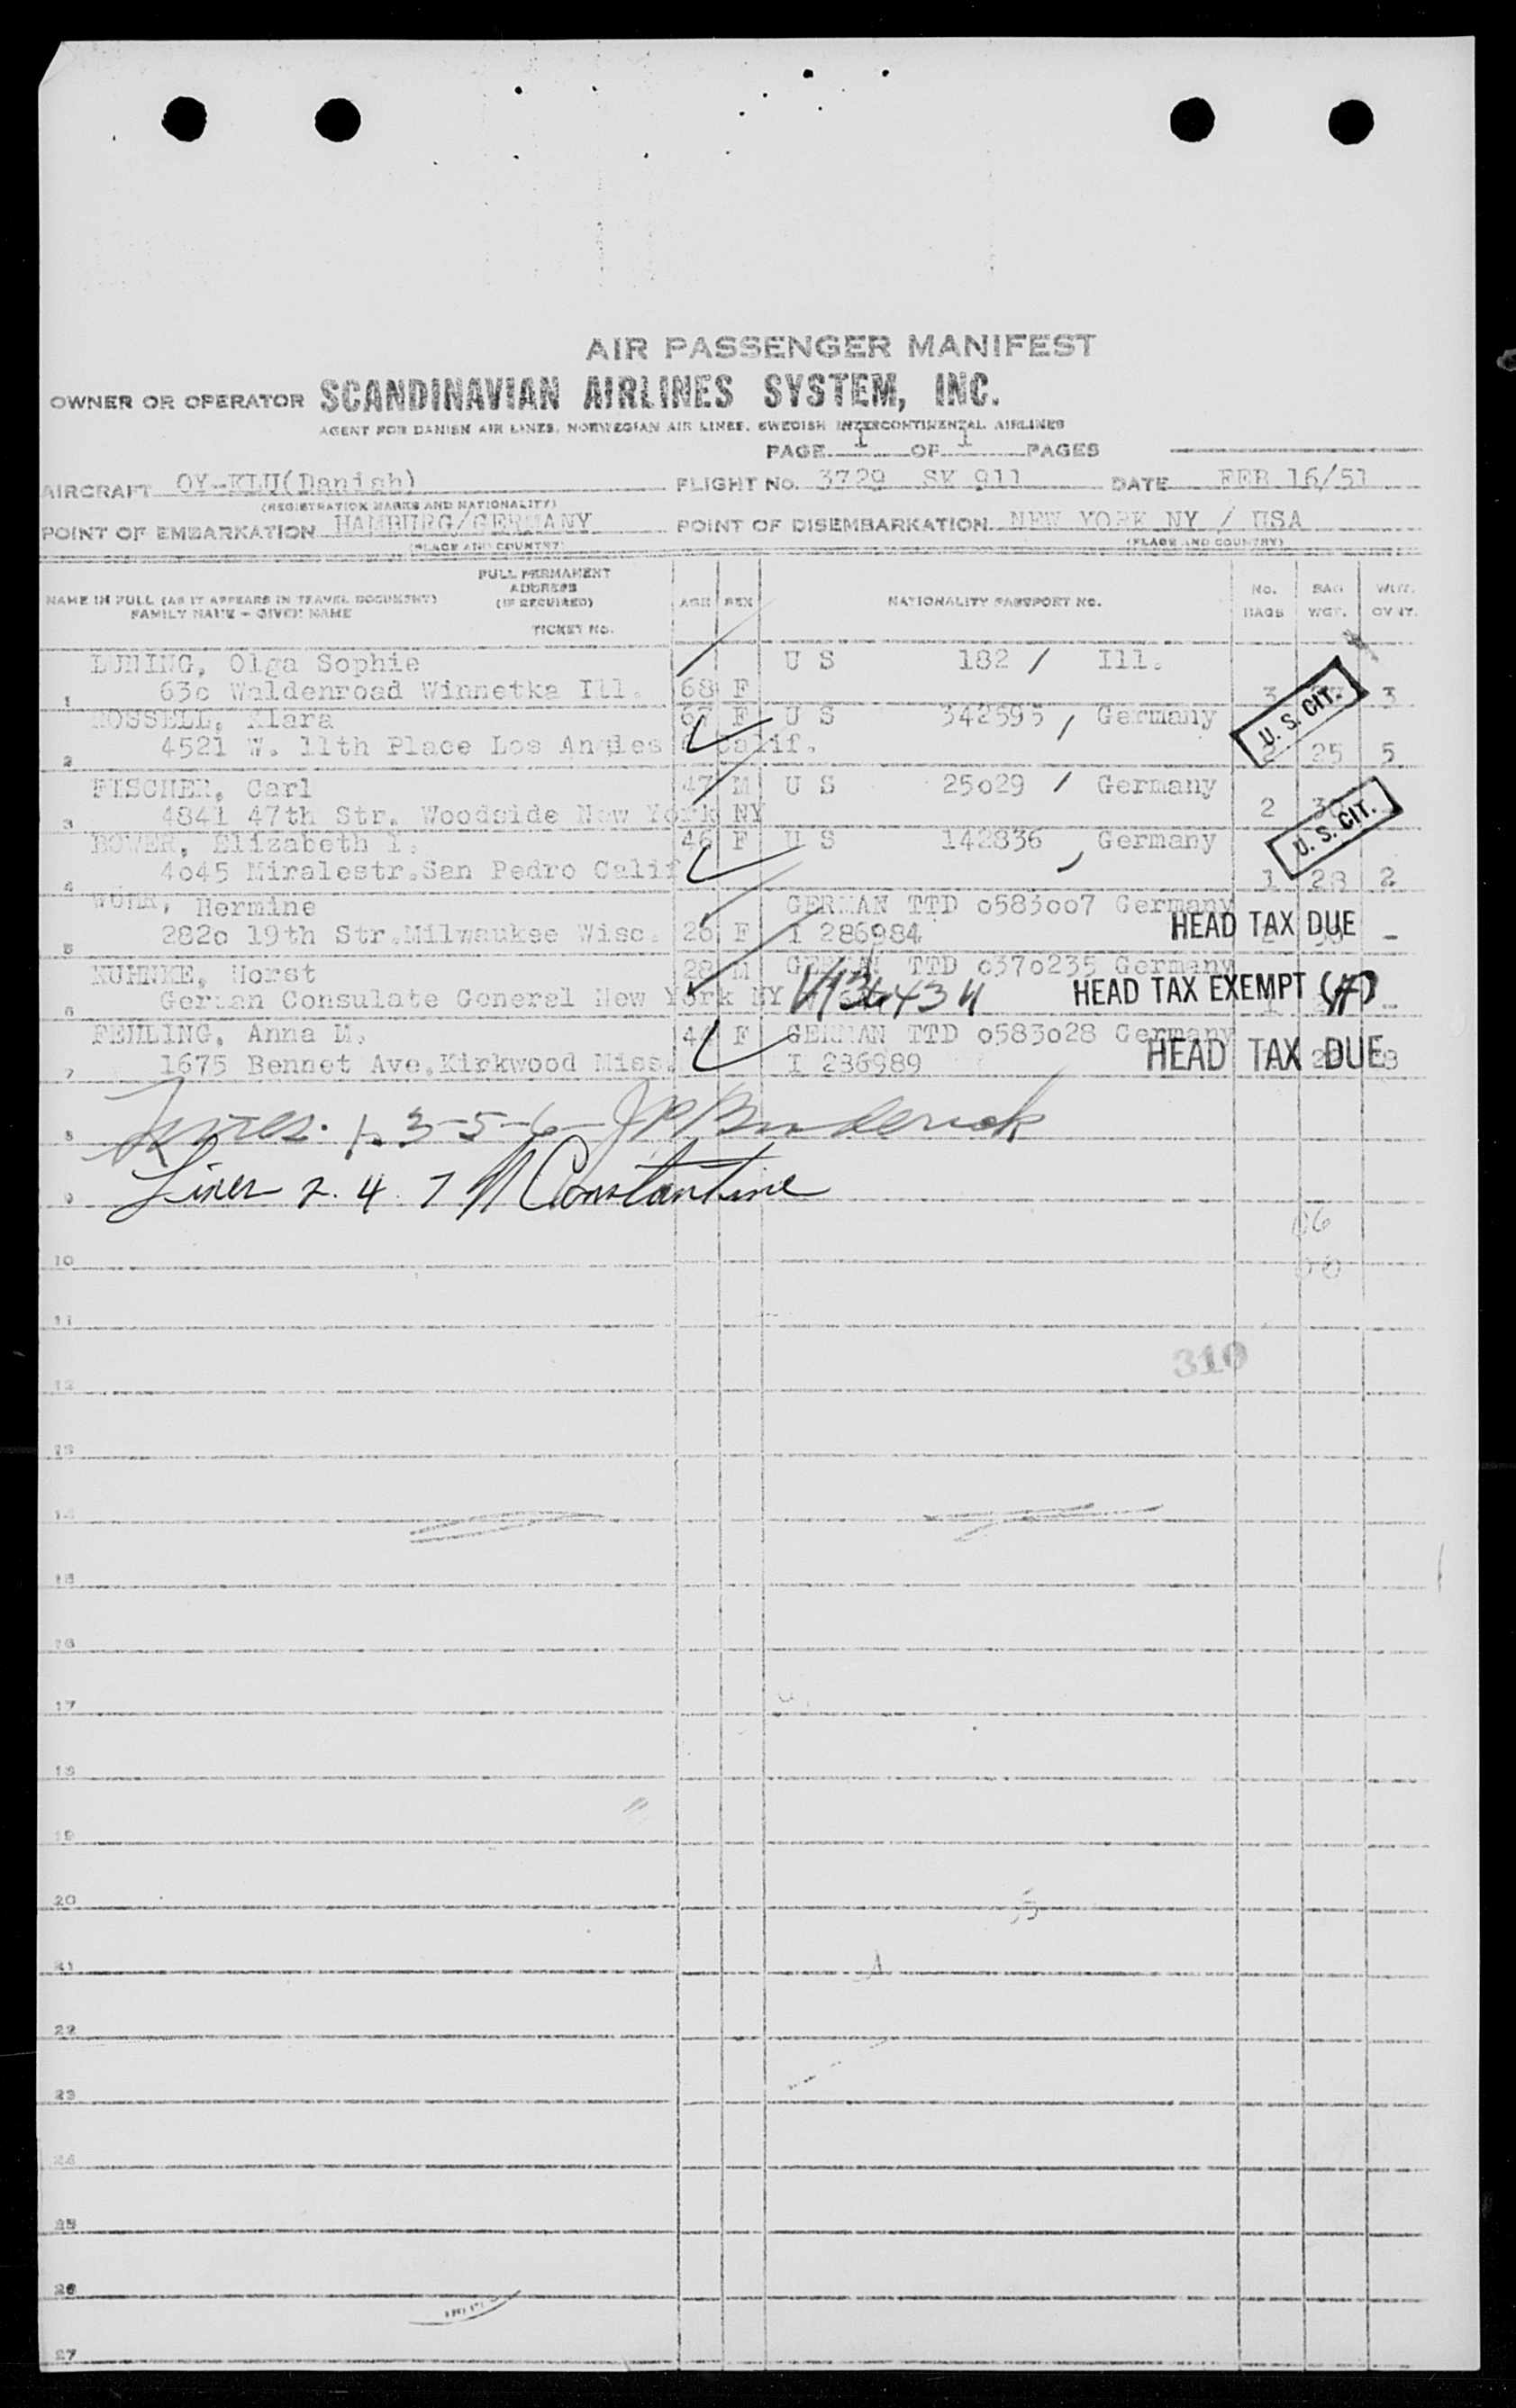 AIR PASSENGER MANIFEST
OWNER OR OPERATOR SCANDINAVIAN AIRLINES SYSTEM, INC.
AGENT FOR DANISH AIR LINES, NORWEGIAN AIR LINES, SWEDISH INTERCONTINENTAL AIRLINES
PAGE 1 OF 1 PAGES
AIRCRAFT OY-KLU(Danish) FLIGHT No. 3729 SK 911 DATE FEB 16/51
(REGISTRATION MARKS AND NATIONALITY)
POINT OF EMBARKATION HAMBURG/GERMANY POINT OF DISEMBARKATION NEW YORK NY / USA
(PLACE AND COUNTRY) (PLACE AND COUNTRY)
NAME IN FULL (AS IT APPEARS IN TRAVEL DOCUMENT) FAMILY NAME - GIVEN NAME FULL PERMANENT ADDRESS (IF REQUIRED) TICKET No. AGE SEX NATIONALITY PASSPORT NO. No. BAGS BAG WGT. WGT. OVWT.
LUNING, Olga Sophie U S 182 / Ill.
1 63o Waldenroad Winnetka Ill. 68 F 3 3
ROSSELL, Klara 67 F U S 342595, Germany U. S. CIT.
2 4521 W. 11th Place Los Angles Calif. 25 5
FISCHER, Carl 47 M U S 25o29 / Germany
3 4841 47th Str. Woodside New York NY 2 30
BOWER, Elizabeth I. 46 F U S 142836, Germany U. S. CIT.
4 4o45 Miralestr.San Pedro Calif 1 28 2
Hermine GERMAN TTD o583oo7 Germany
5 282o 19th Str.Milwaukee Wisc. 26 F I 286984 HEAD TAX DUE -
KUHNKE, Horst 28 M GERMAN TTD o37o235 Germany
6 German Consulate General New York NY HEAD TAX EXEMPT 1 -
FEHLING, Anna M. 44 F GERMAN TTD o583o28 Germany
7 1675 Bennet Ave.Kirkwood Miss. I 286989 HEAD TAX DUE
8 Lines. 1. 3-5-6- JP Broderick
9 Lines 2. 4. 7 N Constantine
10
11
310
12
13
14
15
16
17
18
19
20
21
22
23
24
25
26
27